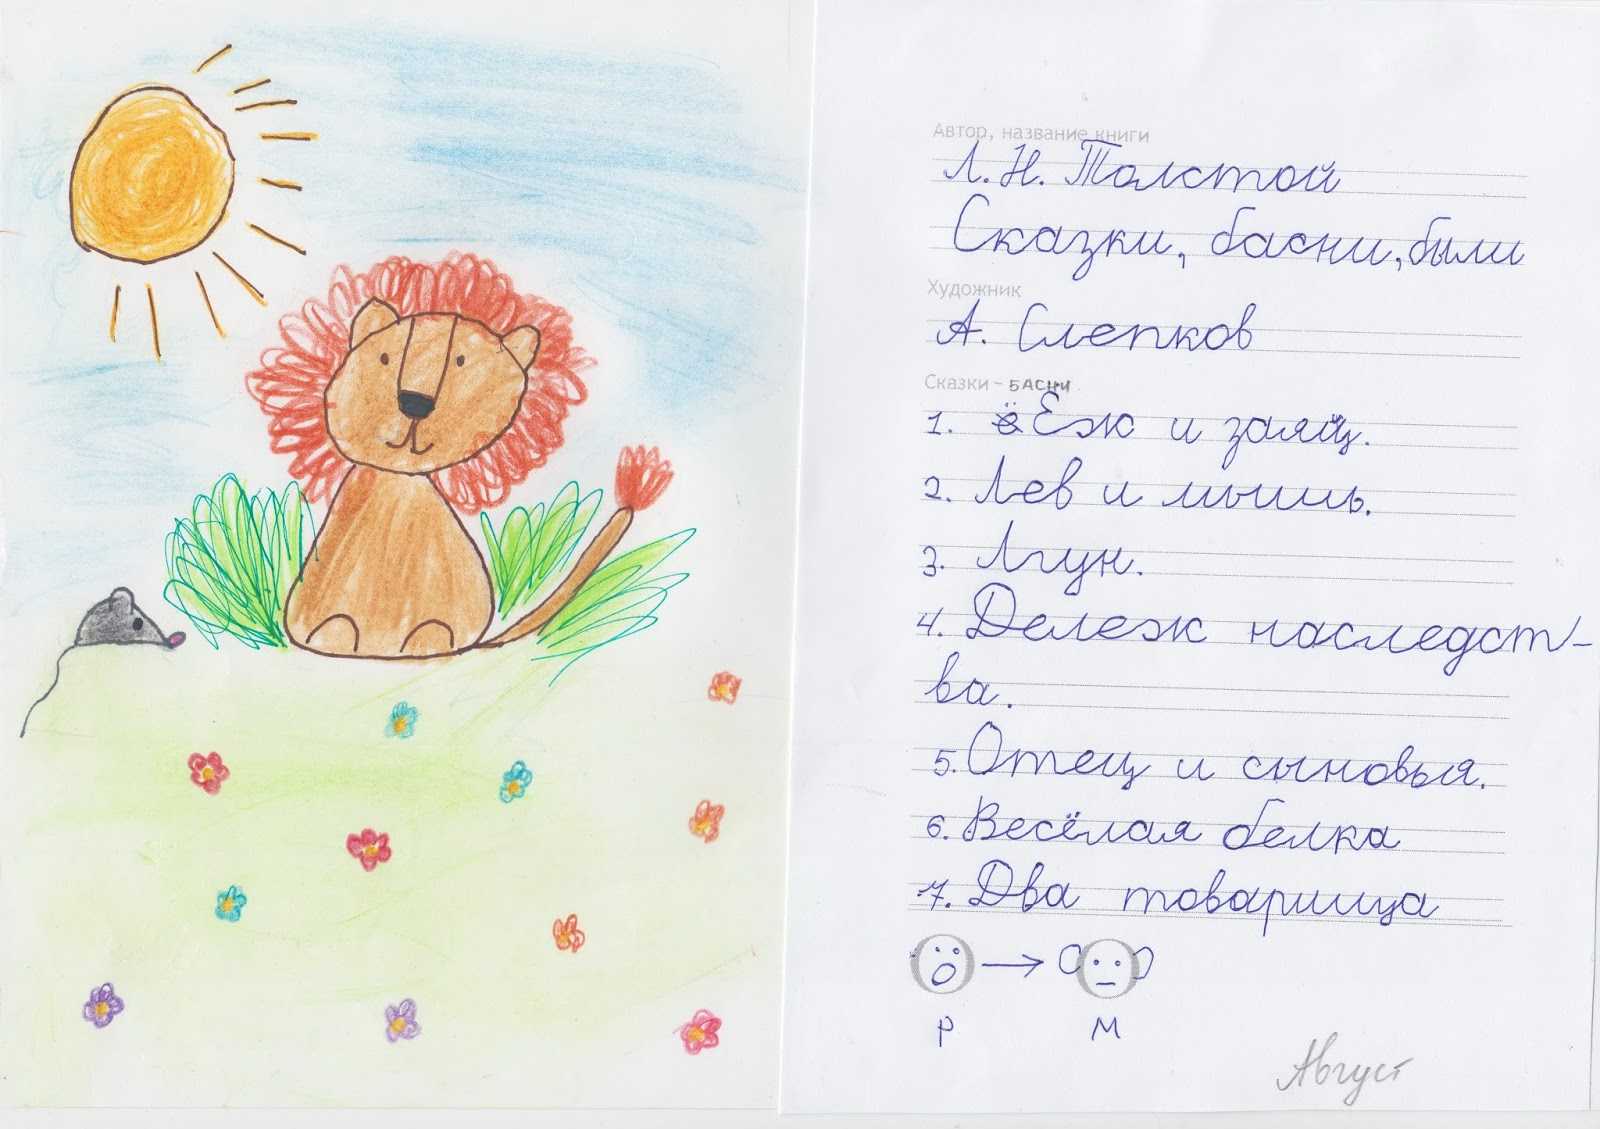 Автор, название книги
Л. Н. Толстой
Сказки, басни, были
Художник
А. Слепков
Сказки - БАСНИ
1. Ёж и заяц.
2. Лев и мышь.
3. Лгун.
4. Дележ наследст-
ва.
5. Отец и сыновья.
6. Весёлая белка
7. Два товарища
Р М
Август